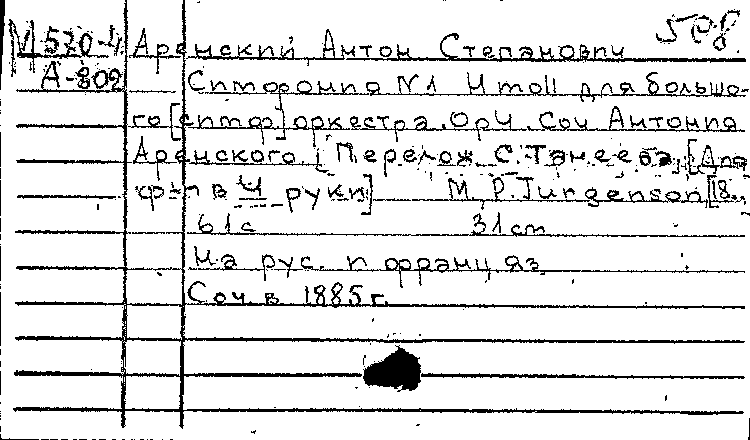 М 520-4 Аренский, Антон Степанович 508.
А-802 Симфония N1 H moll для большо-
го [симф] оркестра. Op 4. Соч Антония
Аренского. [Перелож С. Танеева, [Для
ф-п в 4 руки] М, P. Jurgenson [18..]
61с 31 cm
На рус. и француз яз
Соч в 1885 г.